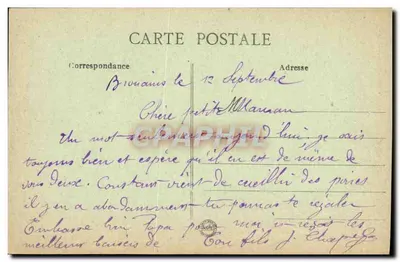 CARTE POSTALE
Correspondance
Adresse
le 12 Septembre
Chère petite Maman
Un mot seulement aujourd'hui je vais
toujours bien et espère qu'il en est de même de
vous deux. Constant vient de cueillir des poires
il y en a abondamment tu pourras te régaler
Embrasse bien Papa pour moi, je reçois les
meilleurs baisers de Ton fils J.